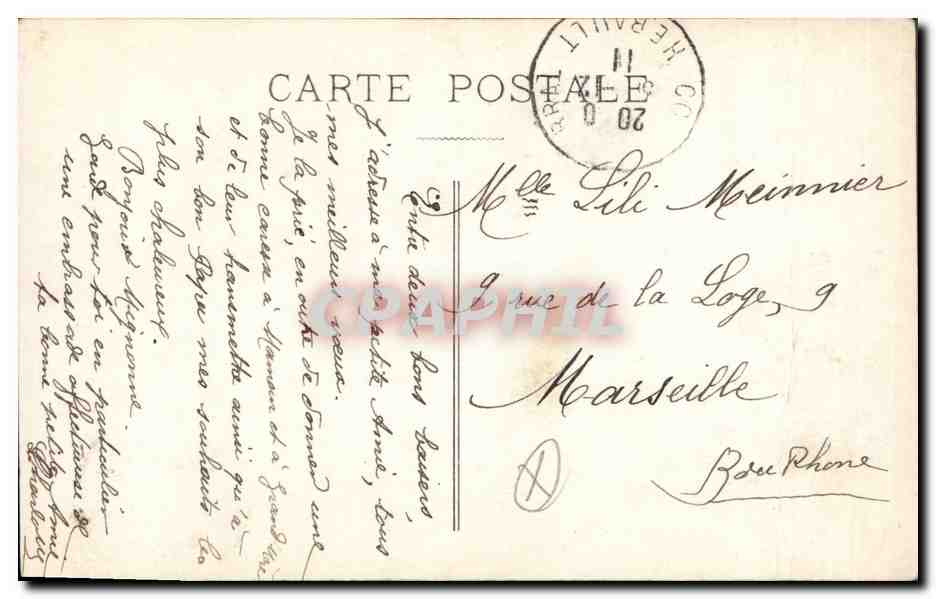 CARTE POSTALE
HERAULT
20
11
Mlle Lili Meinnier
9 rue de la Loge, 9
Marseille
B du Rhone
CPAPHIL
deux bons baisers,
J'adresse à ma petite Amie, tous
mes meilleurs vœux.
Je la prie, en outre de donner une
bonne caresse à Maman et à Grand'
et de leur transmettre ainsi qu'à
son bon Papa mes souhaits les
plus chaleureux.
Bonjour Mignonne.
Garde pour toi en particulier
une embrassade affectueuse de
ta bonne petite Amie